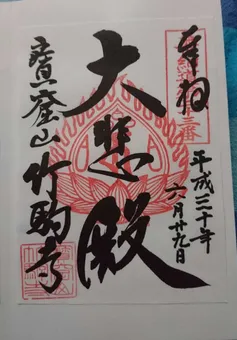 奉拝
平成三十年
六月廿九日
大悲殿
寳窟山竹駒寺